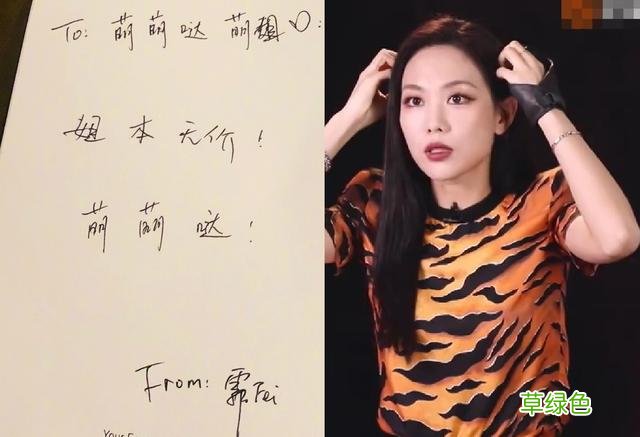 To: 萌萌哒 萌
姐本无价!
萌萌哒!
From: Fei
草绿色